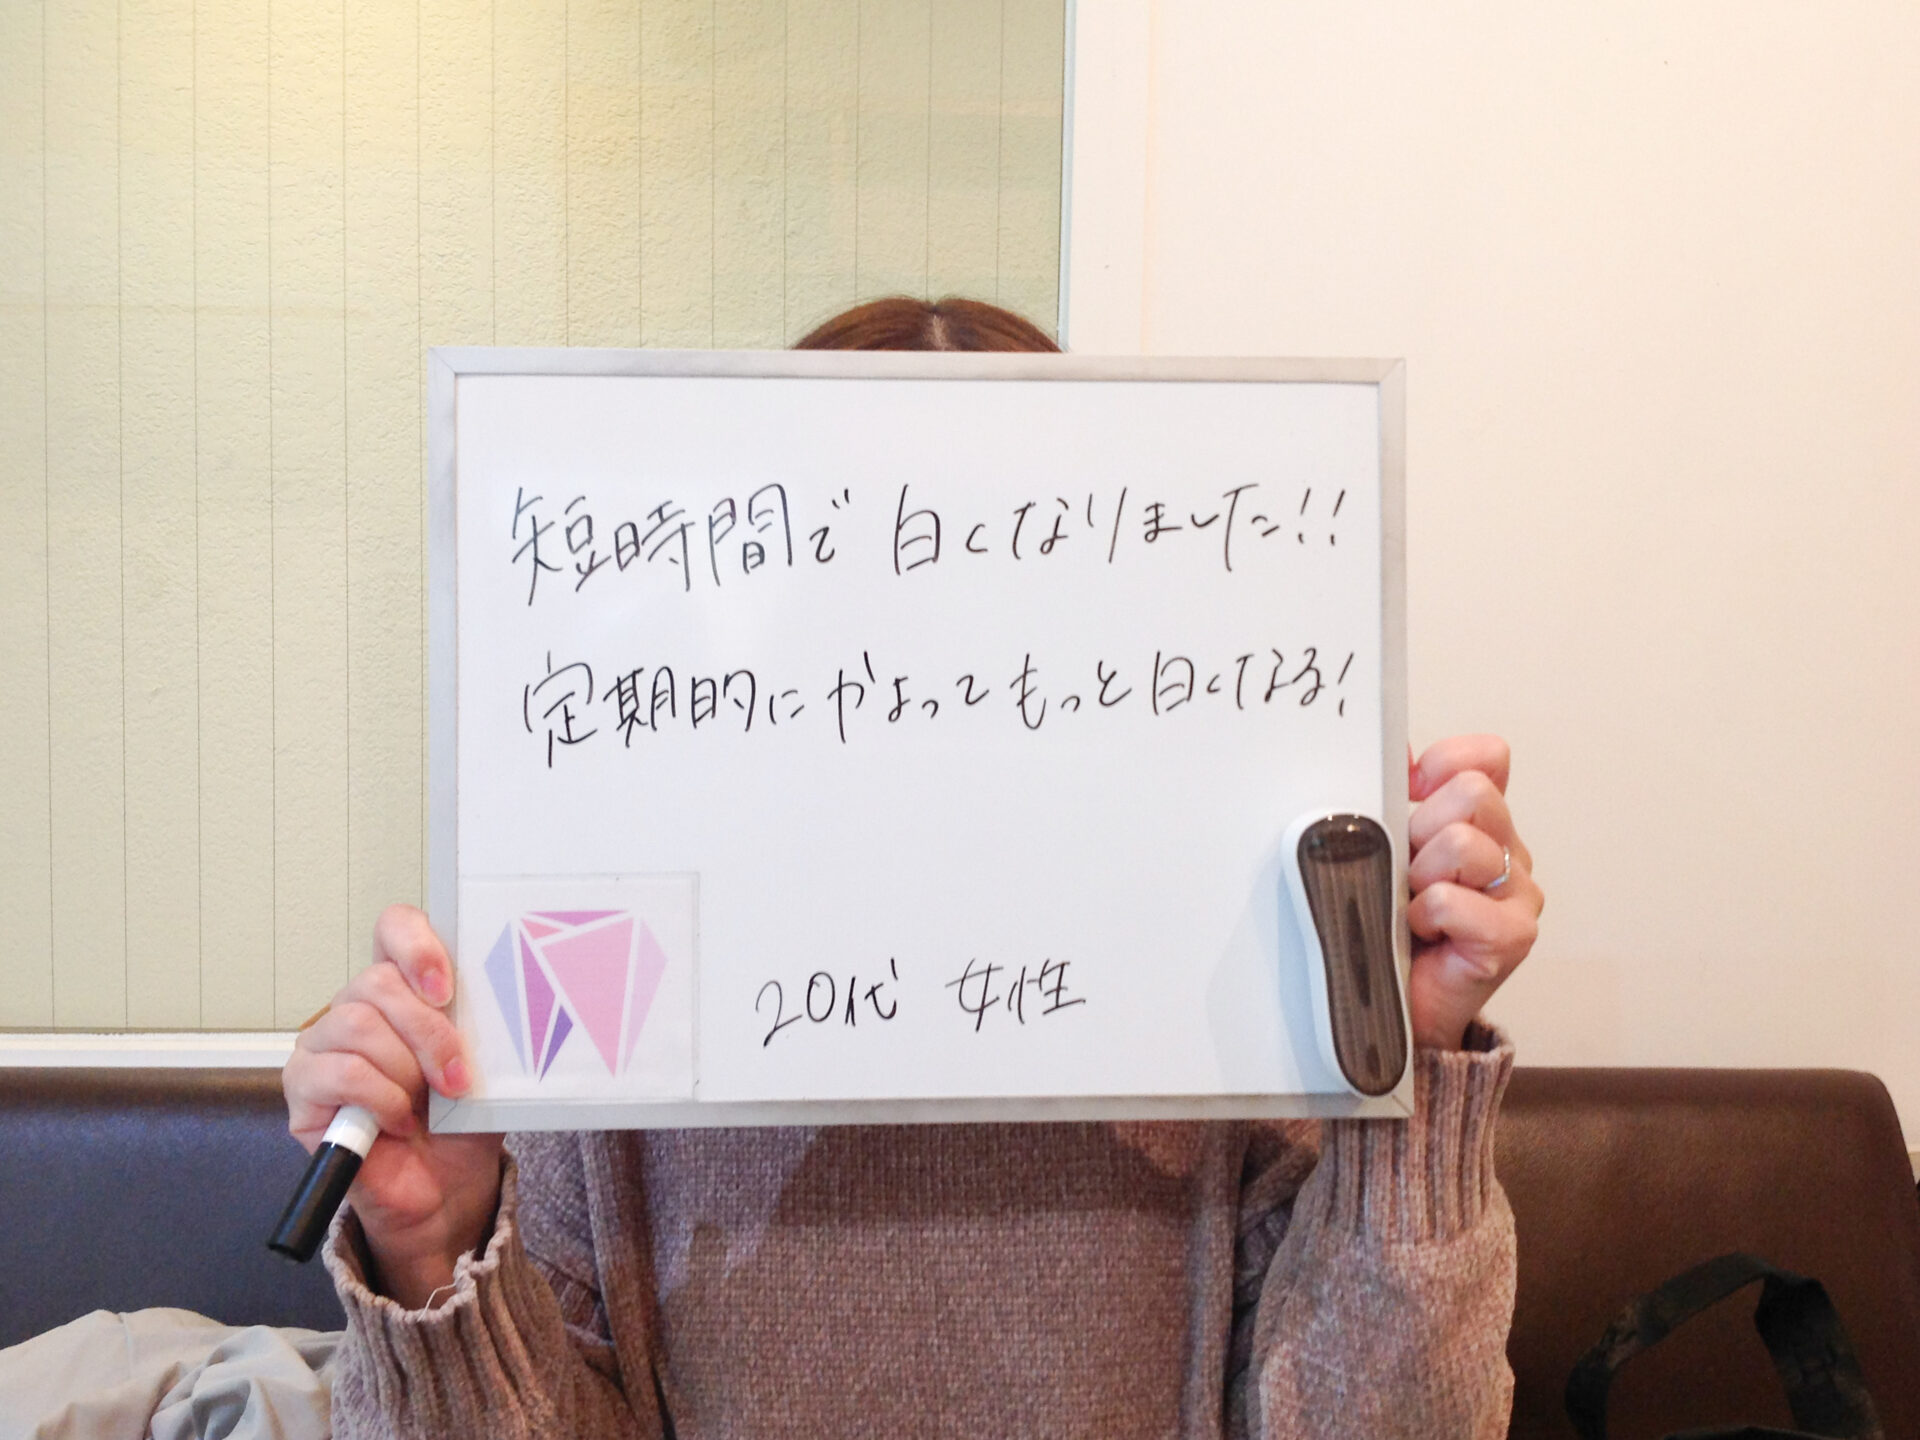 短時間で 白くなりました!!
定期的にかよってもっと白くなる!
20代 女性